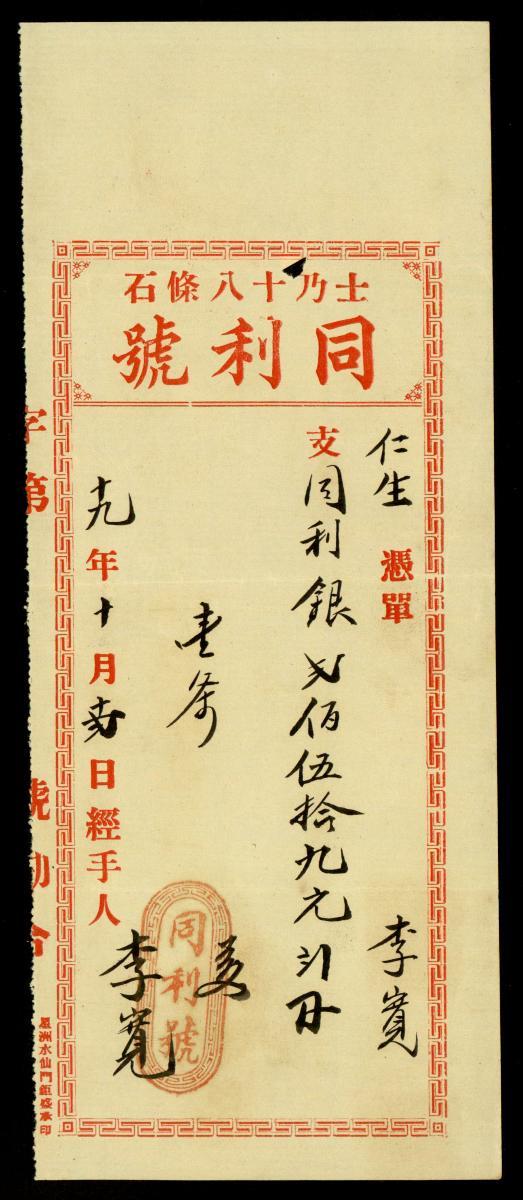 士乃十八條石
同利號
仁生 憑單 李寬
支同利銀 佰伍拾九元
壹条
同利號
十九年十月 日經手人 李寬
字第 號勘合
星洲水仙門鉅盛承印